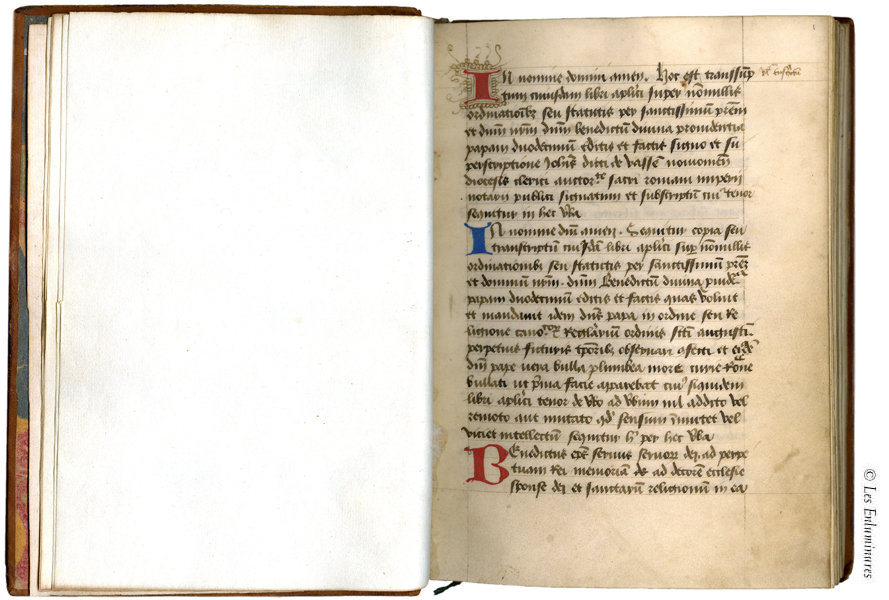 In nomine domini amen. Hoc est transsūp
tum cuiusdam libri aplici super nōnullis
ordinationibꝫ seu statutis per sanctissimum prēm
et dnūm nrūm dnūm benedictū diuina prouidentia
papam duodecimum editis et factis signo et su
perscriptione Johis dicti de vassē nouiomēn
diocesis clerici auctorᵗᵉ sacri romani imperij
notarij publici signatum et subscriptum cuiꝰ tenor
sequitur in hec vba
In nomine dnī amen. Sequitur copia seu
transcriptū cuiusdā libri aplici sup nōnullis
ordinationibꝫ seu statutis per sanctissimum prēm
et dominum nrūm. dnūm Benedictū diuina
papam duodecimum editis et factis quas voluit
et mandauit idem dns papa in ordine seu Re
ligione canoᶜᵒʳ Regularium ordinis sctī augustī.
perpetuis futuris tpōribꝫ obseruari et
dnī pape vera bulla plumbea more curie Roāe
bullati ut prima facie apparebat cuiꝰ siquidem
libri aplici tenor de vbo ad vbum nil addito vel
remoto aut mutato qđ sensum īmutet vel
viciet intellectum sequitur per hec vba
Benedictus epūs seruus seruorꝫ dei ad perpe
tuam Rei memoriam ad decorem ecclesie
sponse dei et sanctarum religionum in ea
© Les Enluminures